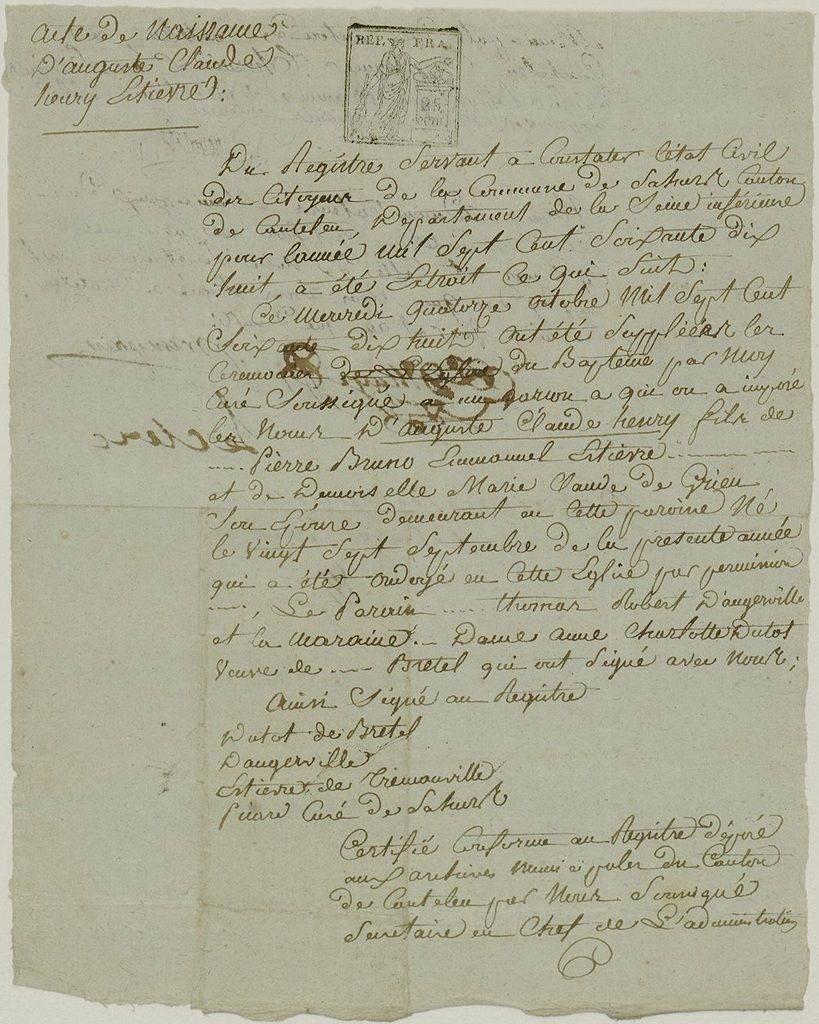 Acte de Naissance
D'auguste Claude
henry Estievre :
REP. FRA.
25
cen
Du Registre Servant a Constater l'état Civil
des Citoyens de la Commune de Sahurs Canton
de Canteleu, Département de la Seine inférieure
pour l'année Mil Sept Cent Soixante dix
huit a été Extrait Ce qui Suit :
Ce Mercredi quatorze octobre Mil Sept Cent
Soixante dix huit ont été Suppléées les
Ceremonies du Bapteme par Moy
Curé Soussigné a un garson a qui on a imposé
les Noms D'auguste Claude henry fils de
.... Pierre Bruno Emmanuel Estievre
et de Demoiselle Marie de Grieu
Son Epouse demeurant en Cette paroisse Né
le vingt Sept Septembre de la presente année
qui a été ondoyé en Cette Eglise par permission
...., Le Parain ..... thomas Robert D'angerville
et la Maraine .. Dame anne Charlotte Dutot
Veuve de .... Bretel qui ont Signé avec Nous ;
Ainsi Signé au Registre
Dutot de Bretel
Dangerville
Estievre de Trémauville
Curé de Sahurs
Certifié Conforme au Registre déposé
aux archives Municipales Du Canton
de Canteleu par Nous Soussigné
Secretaire en Chef de L'administration